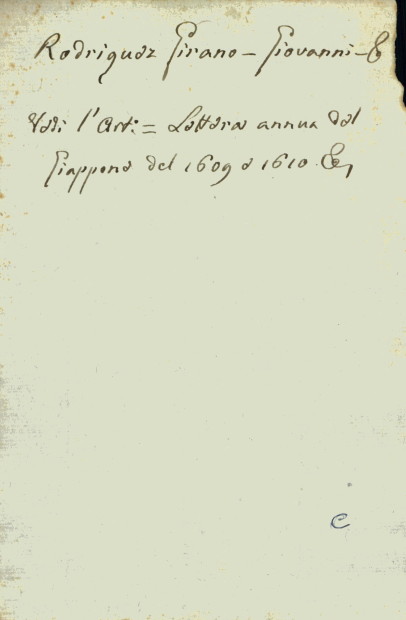 Rodriguez Girano - Giovanni - &
Vedi l'Art: = Lettera annua del
Giappone del 1609 e 1610. &,
C